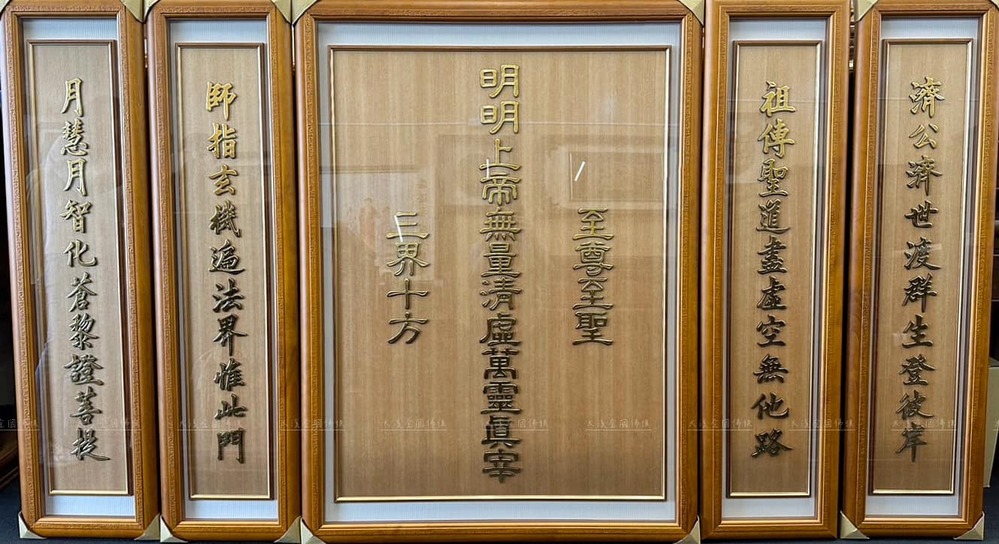 濟公濟世渡群生登彼岸
祖傳聖道盡虛空無他路
至尊至聖
明明上帝無量清虛萬靈真宰
三界十方
師指玄機遍法界惟此門
月慧月智化蒼黎證菩提